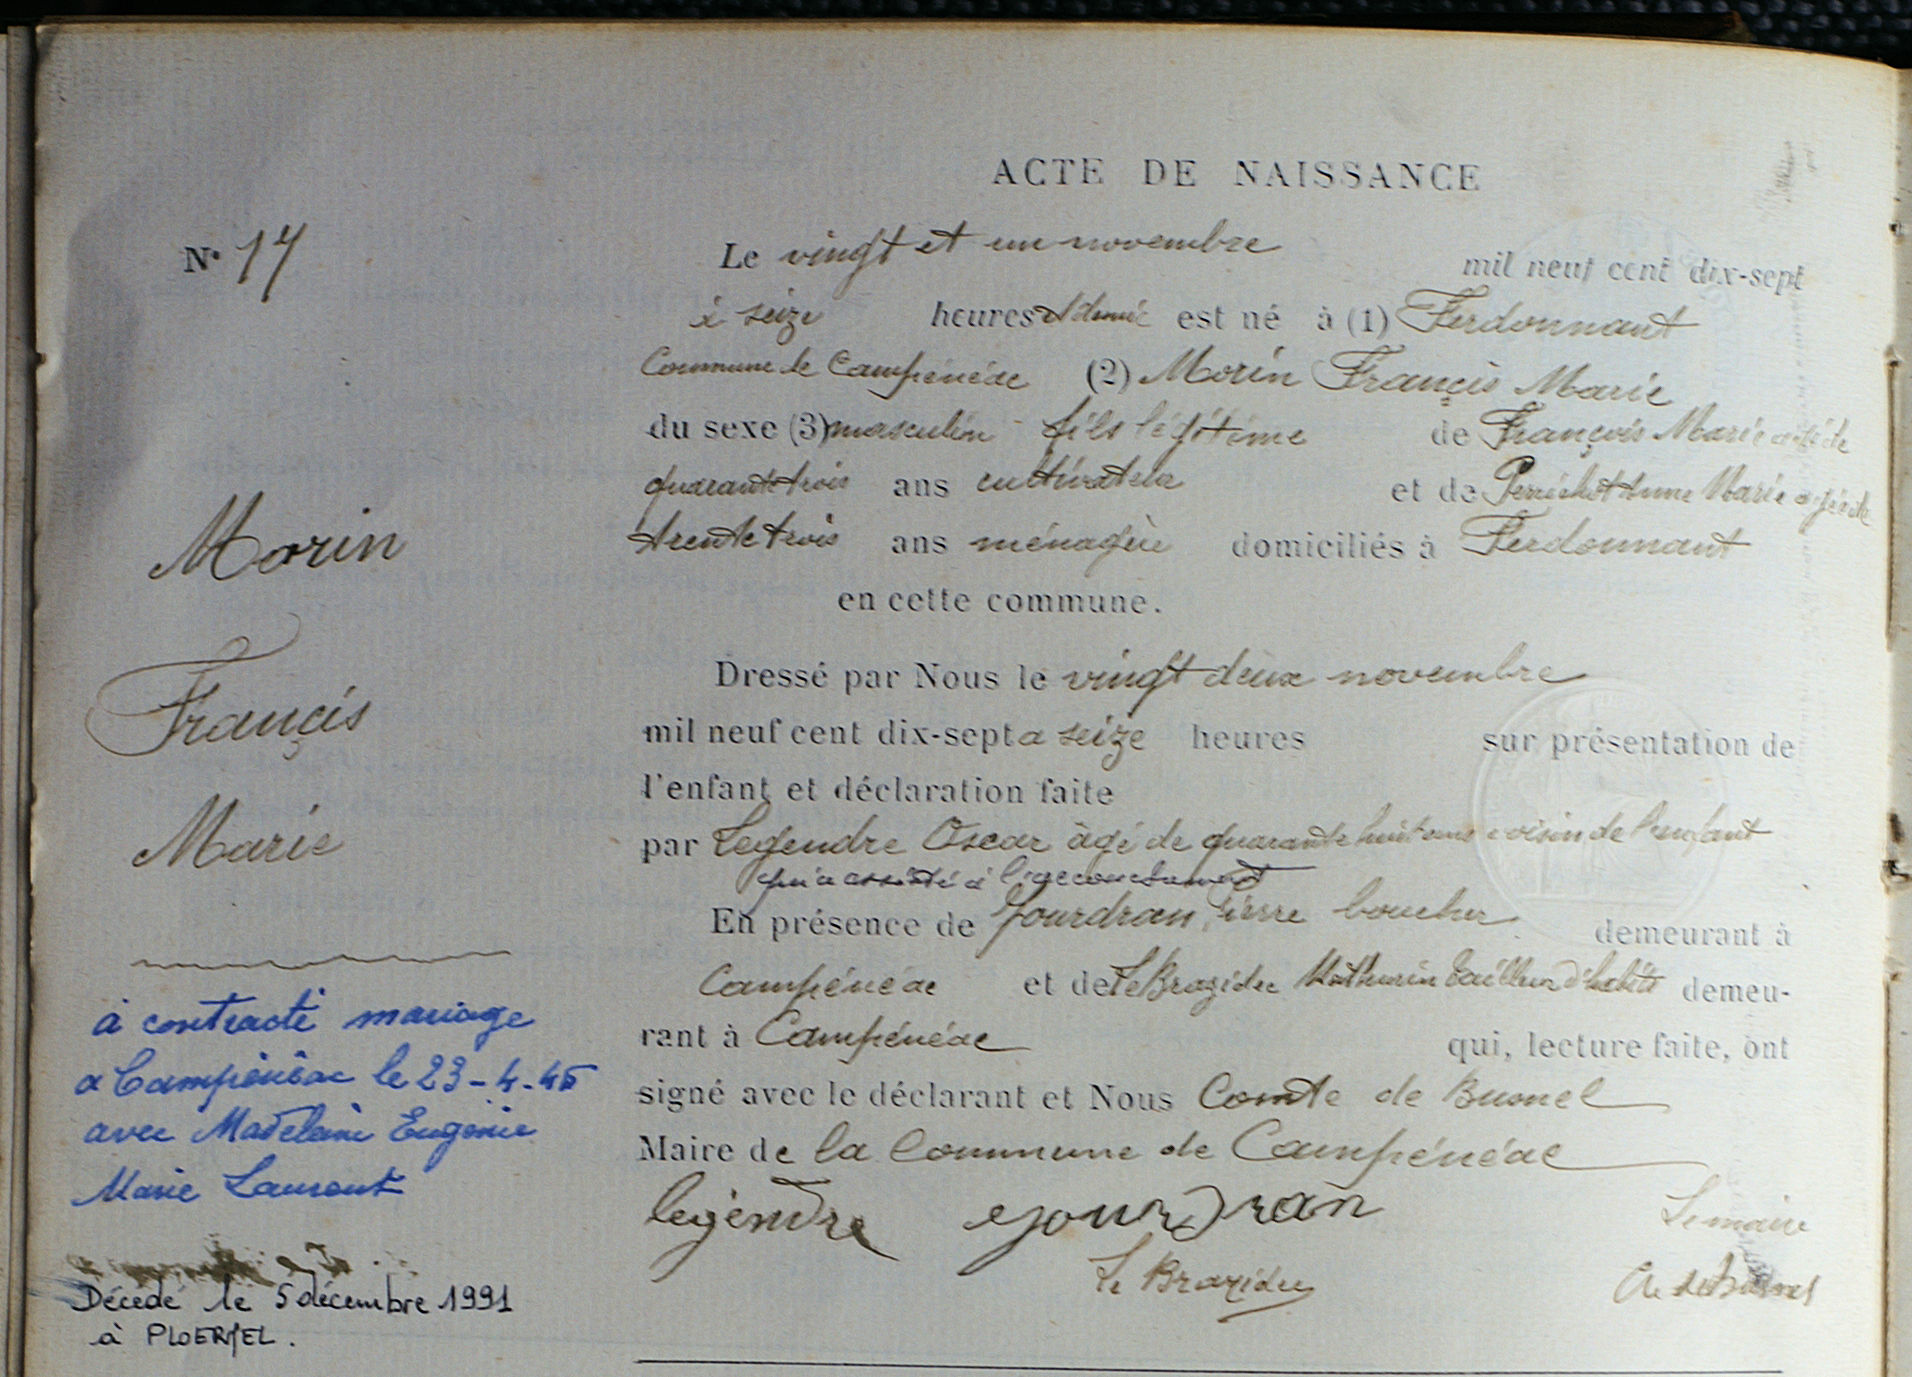 ACTE DE NAISSANCE
N° 17
Le vingt et un novembre mil neuf cent dix-sept
à seize heures et demie est né à (1) Ferdonnant
Commune de Campénéac (2) Morin Françis Marie
du sexe (3) masculin fils légitime de François Marie agé de
quarante trois ans cultivateur et de Perrichot Anne Marie agée de
trente trois ans ménagère domiciliés à Ferdonnant
en cette commune.
Dressé par Nous le vingt deux novembre
mil neuf cent dix-sept a seize heures sur présentation de
l'enfant et déclaration faite
par Legendre Oscar âgé de quarante huit ans voisin de l'enfant
qui a assisté à l'accouchement
En présence de Jourdran Pierre boucher demeurant à
Campénéac et de Le Brazidec Mathurin tailleur d'habits demeu-
rant à Campénéac qui, lecture faite, ont
signé avec le déclarant et Nous Comte de Busnel
Maire de la Commune de Campénéac
legendre Jourdran Le maire
Le Brazidec de Busnel
Morin
Françis
Marie
à contracté mariage
a Campénéac le 23-4-45
avec Madeleine Eugénie
Marie Laurent
Décédé le 5 décembre 1991
à PLOERMEL.